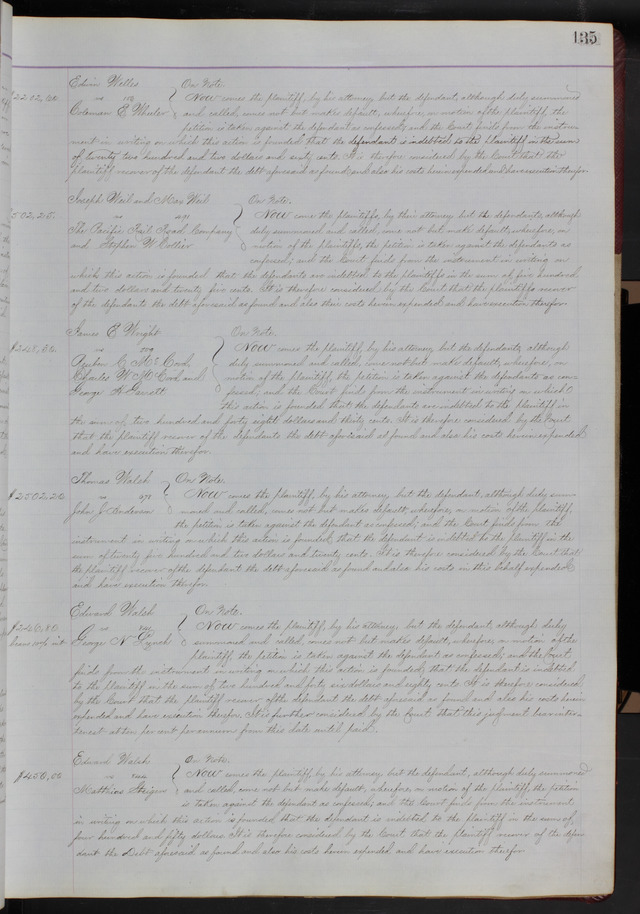 135
Edwin Welles } On Note.
$2202,60 vs } Now comes the plaintiff, by his attorney, but the defendant, although duly summoned
Coleman E Wheeler } and called, comes not but makes default, wherefore, on motion of the plaintiff, the
petition is taken against the defendant as confessed; and the Court finds from the instru-
ment in writing on which this action is founded that the defendant is indebted to the plaintiff in the sum
of twenty two hundred and two dollars and sixty cents. It is therefore considered by the Court that the
plaintiff recover of the defendant the debt aforesaid as found and also his costs herein expended and have execution therefor.
Joseph Weil and Max Weil } On Note.
502,25 vs } Now come the plaintiffs, by their attorney but the defendants, although
The Pacific Rail Road Company } duly summoned and called, come not but make default, wherefore, on
and Stephen W Collier } motion of the plaintiffs, the petition is taken against the defendants as
confessed; and the Court finds from the instrument in writing on
which this action is founded that the defendants are indebted to the plaintiffs in the sum of five hundred
and two dollars and twenty five cents. It is therefore considered by the Court that the plaintiffs recover
of the defendants the debt aforesaid as found and also their costs herein expended and have execution therefor.
James E Wright } On Note.
$248,30 vs } Now comes the plaintiff by his attorney but the defendants, although
Reuben C McCook, } duly summoned and called, come not but make default; wherefore, on
Charles W McCook and } motion of the plaintiff, the petition is taken against the defendants as con-
George A Garrett } fessed; and the Court finds from the instrument in writing on which
this action is founded that the defendants are indebted to the plaintiff in
the sum of two hundred and forty eight dollars and thirty cents. It is therefore considered by the Court
that the plaintiff recover of the defendants the debt aforesaid as found and also his costs herein expended
and have execution therefor.
Thomas Walsh } On Note.
$2502,20 vs } Now comes the plaintiff, by his attorney, but the defendant, although duly sum-
John J Anderson } moned and called, comes not but makes default; wherefore, on motion of the plaintiff,
the petition is taken against the defendant as confessed; and the Court finds from the
instrument in writing on which this action is founded, that the defendant is indebted to the plaintiff in the
sum of twenty five hundred and two dollars and twenty cents. It is therefore considered by the Court that
the plaintiff recover of the defendant the debt aforesaid as found and also his costs in this behalf expended
and have execution therefor.
Edward Walsh } On Note.
$246,80 vs } Now comes the plaintiff, by his attorney but the defendant, although duly
bears 10% int George N Lynch } summoned and called, comes not but makes default, wherefore, on motion of the
plaintiff, the petition is taken against the defendant as confessed; and the Court
finds from the instrument in writing on which this action is founded, that the defendant is indebted
to the plaintiff in the sum of two hundred and forty six dollars and eighty cents. It is therefore considered
by the Court that the plaintiff recover of the defendant the debt aforesaid as found and also his costs herein
expended and have execution therefor. It is further considered by the Court that this judgment bear inter-
terest at ten per cent per annum from this date until paid.
Edward Walsh } On Note.
$450,00 vs } Now comes the plaintiff, by his attorney but the defendant, although duly summoned
Matthias Steigers } and called, come not but make default, wherefore, on motion of the plaintiff, the petition
is taken against the defendant as confessed; and the Court finds from the instrument
in writing on which this action is founded that the defendant is indebted to the plaintiff in the sum of
four hundred and fifty dollars. It is therefore considered by the Court that the plaintiff recover of the defen-
dant the Debt aforesaid as found and also his costs herein expended and have execution therefor.